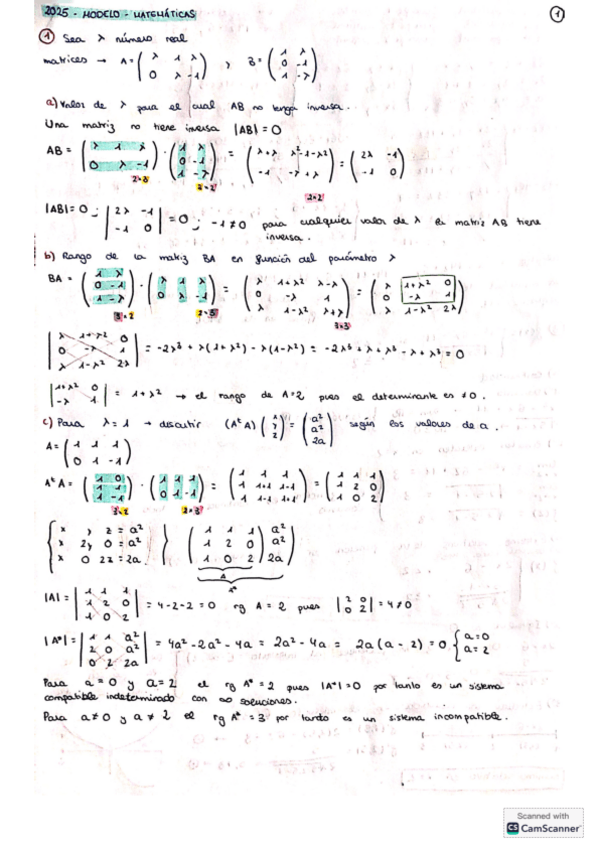 2025 - MODELO - MATEMÁTICAS
1
① Sea λ número real
matrices → A = ( λ 1 λ / 0 λ -1 ) y B = ( 1 λ / 0 -1 / 1 -λ )
a) Valores de λ para el cual AB no tenga inversa.
Una matriz no tiene inversa |AB| = 0
AB = ( λ 1 λ / 0 λ -1 ) · ( 1 λ / 0 -1 / 1 -λ ) = ( λ+λ λ²-1-λ² / -1 -λ+λ ) = ( 2λ -1 / -1 0 )
2×3 3×2 2×2
|AB| = 0 ; | 2λ -1 / -1 0 | = 0 ; -1 ≠ 0 para cualquier valor de λ la matriz AB tiene
inversa.
b) Rango de la matriz BA en función del parámetro λ
BA = ( 1 λ / 0 -1 / 1 -λ ) · ( λ 1 λ / 0 λ -1 ) = ( λ 1+λ² λ-λ / 0 -λ 1 / λ 1-λ² λ+λ ) = ( λ 1+λ² 0 / 0 -λ 1 / λ 1-λ² 2λ )
3×2 2×3 3×3
| λ 1+λ² 0 / 0 -λ 1 / λ 1-λ² 2λ | = -2λ³ + λ(1+λ²) - λ(1-λ²) = -2λ³ + λ + λ³ - λ + λ³ = 0
| 1+λ² 0 / -λ 1 | = 1+λ² → el rango de A=2 pues el determinante es ≠ 0.
c) Para λ = 1 → discutir (AᵗA) ( x / y / z ) = ( a² / a² / 2a ) según los valores de a.
A = ( 1 1 1 / 0 1 -1 )
AᵗA = ( 1 0 / 1 1 / 1 -1 ) · ( 1 1 1 / 0 1 -1 ) = ( 1 1 1 / 1 1+1 1-1 / 1 1-1 1+1 ) = ( 1 1 1 / 1 2 0 / 1 0 2 )
3×2 2×3
{ x y z = a² / x 2y 0 = a² / x 0 2z = 2a } ( 1 1 1 | a² / 1 2 0 | a² / 1 0 2 | 2a )
A
A*
|A| = | 1 1 1 / 1 2 0 / 1 0 2 | = 4-2-2 = 0 rg A = 2 pues | 2 0 / 0 2 | = 4 ≠ 0
|A*| = | 1 1 a² / 2 0 a² / 0 2 2a | = 4a² - 2a² - 4a = 2a² - 4a = 2a(a-2) = 0 { a=0 / a=2
Para a = 0 y a = 2 el rg A* = 2 pues |A*| = 0 por tanto es un sistema
compatible indeterminado con ∞ soluciones.
Para a ≠ 0 y a ≠ 2 el rg A* = 3 por tanto es un sistema incompatible.
Scanned with
CS CamScanner